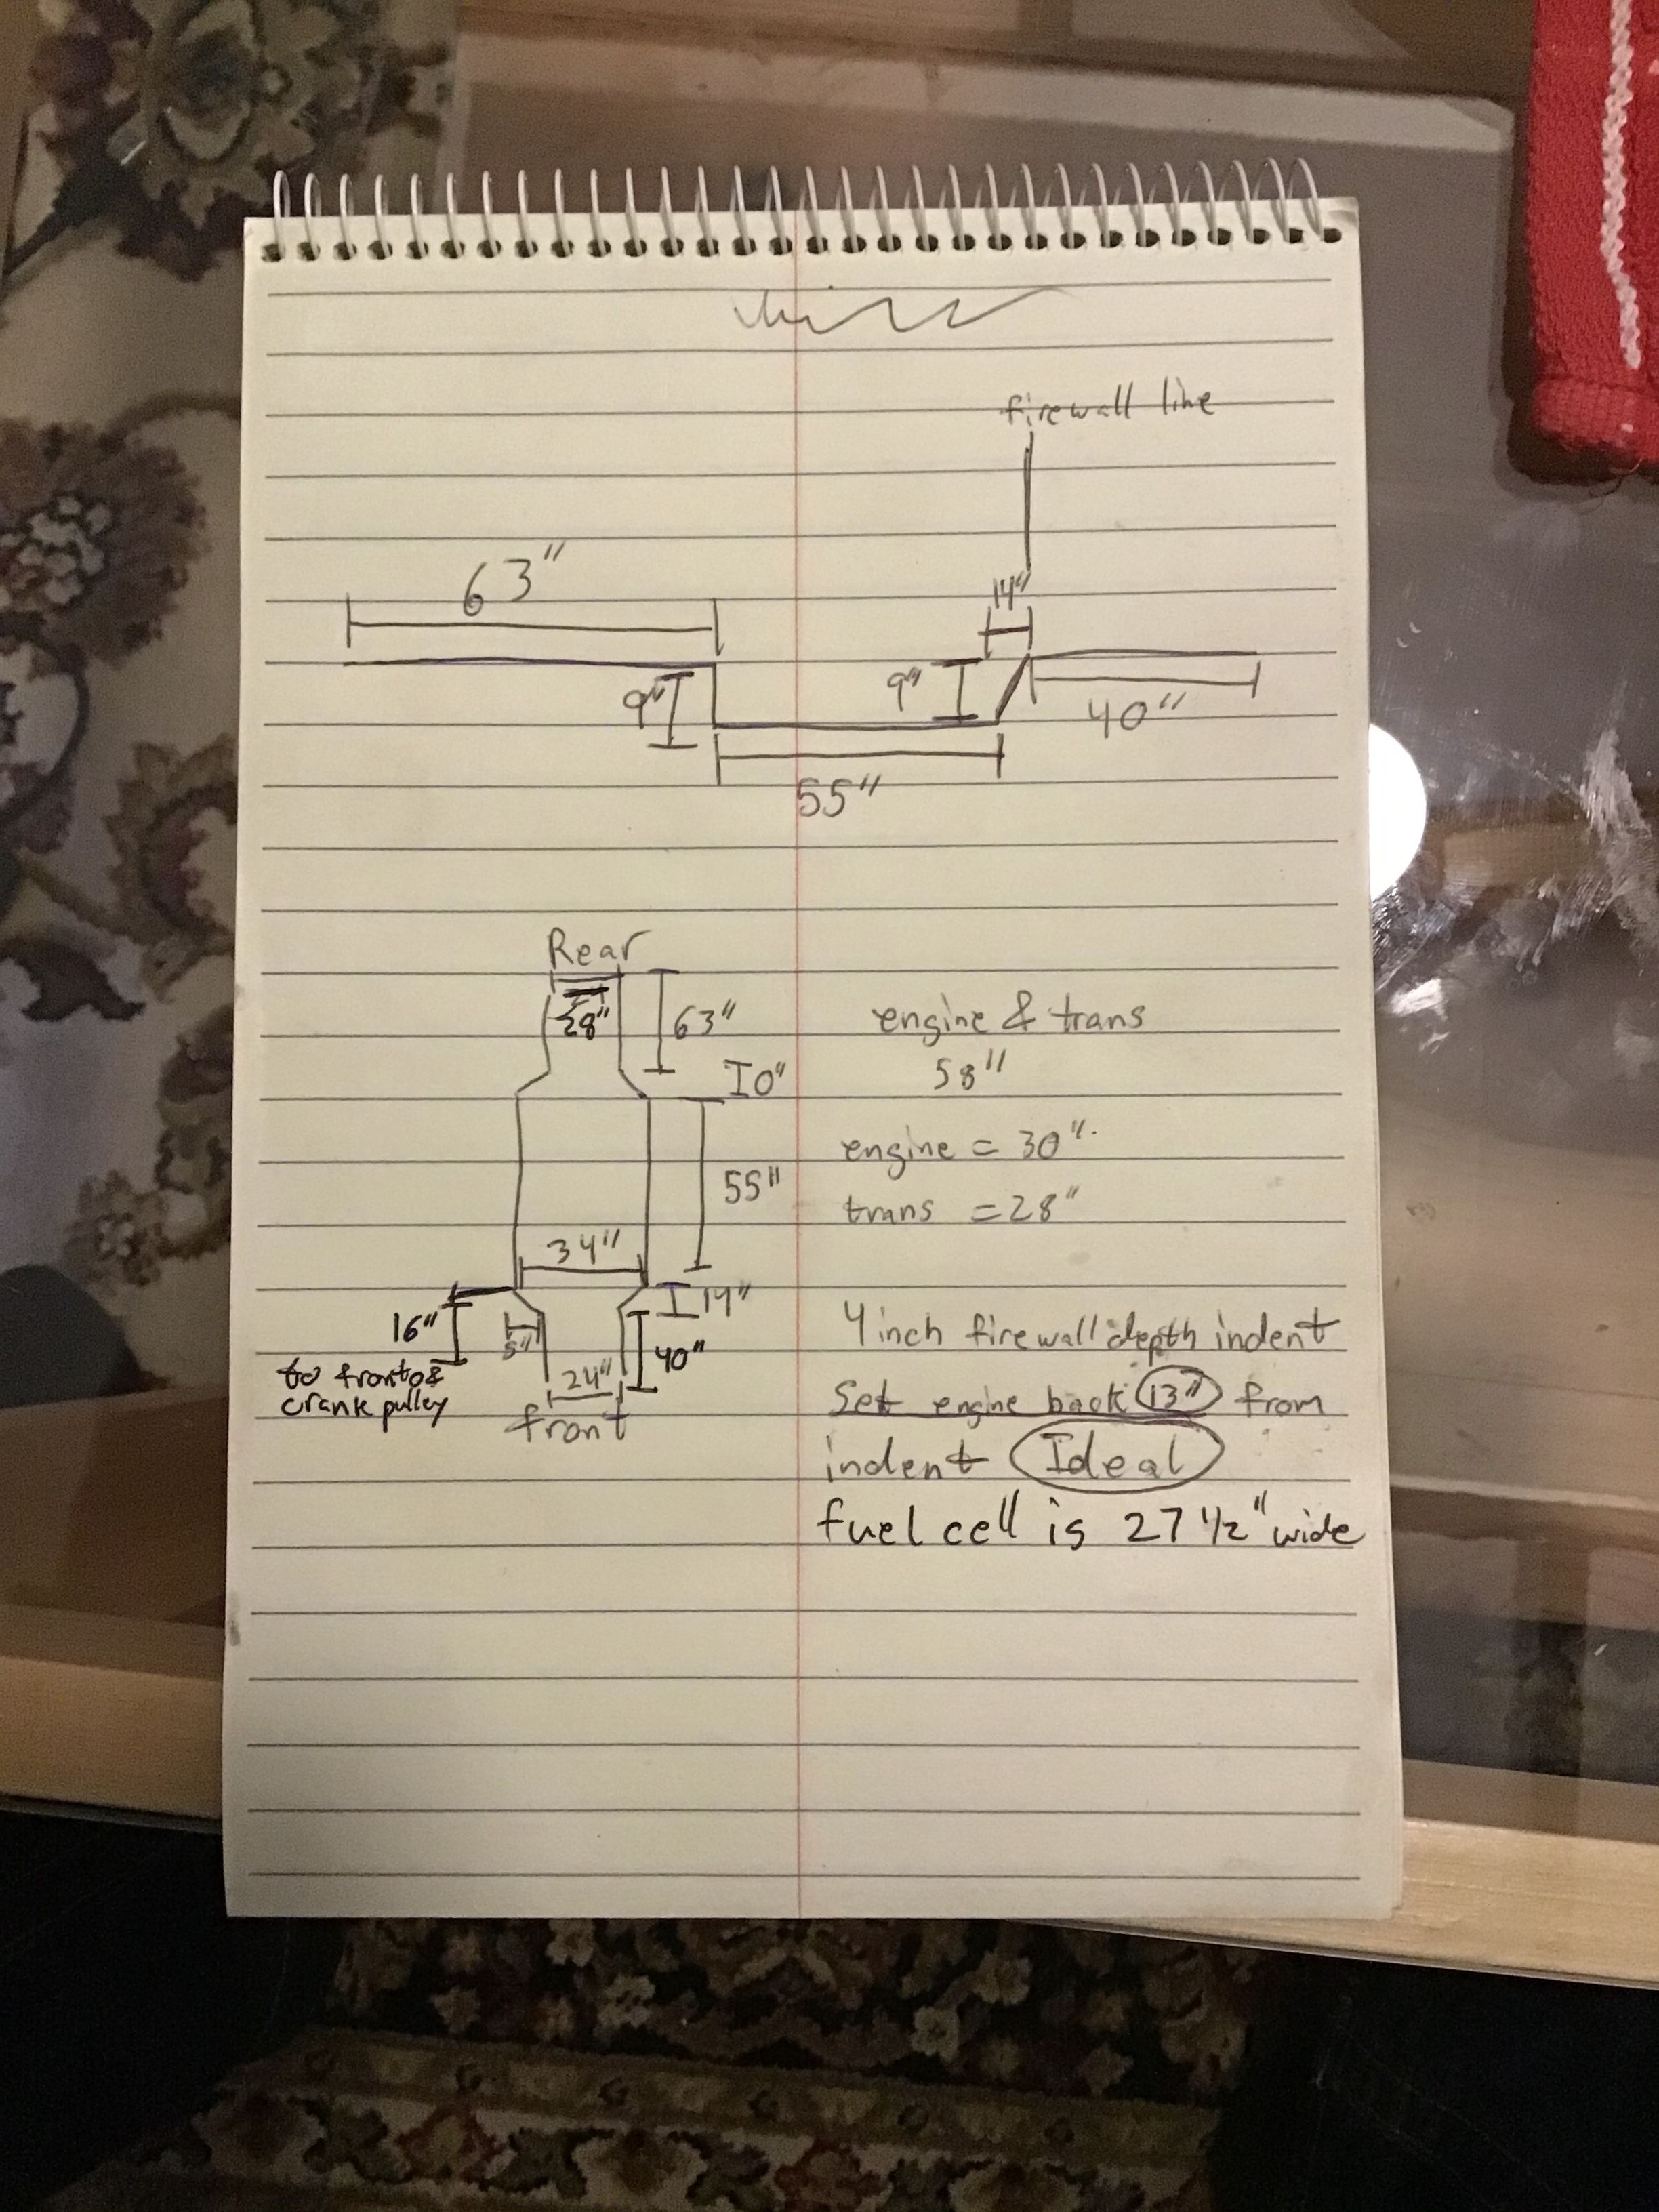 firewall line
63"
14"
9"
9"
40"
55"
Rear
28"
63"
I0"
55"
34"
14"
16"
5"
40"
to front of
crank pulley
24"
front
engine & trans
58"
engine = 30".
trans = 28"
4 inch firewall depth indent
Set engine back 13" from
indent Ideal
fuel cell is 27 1/2" wide